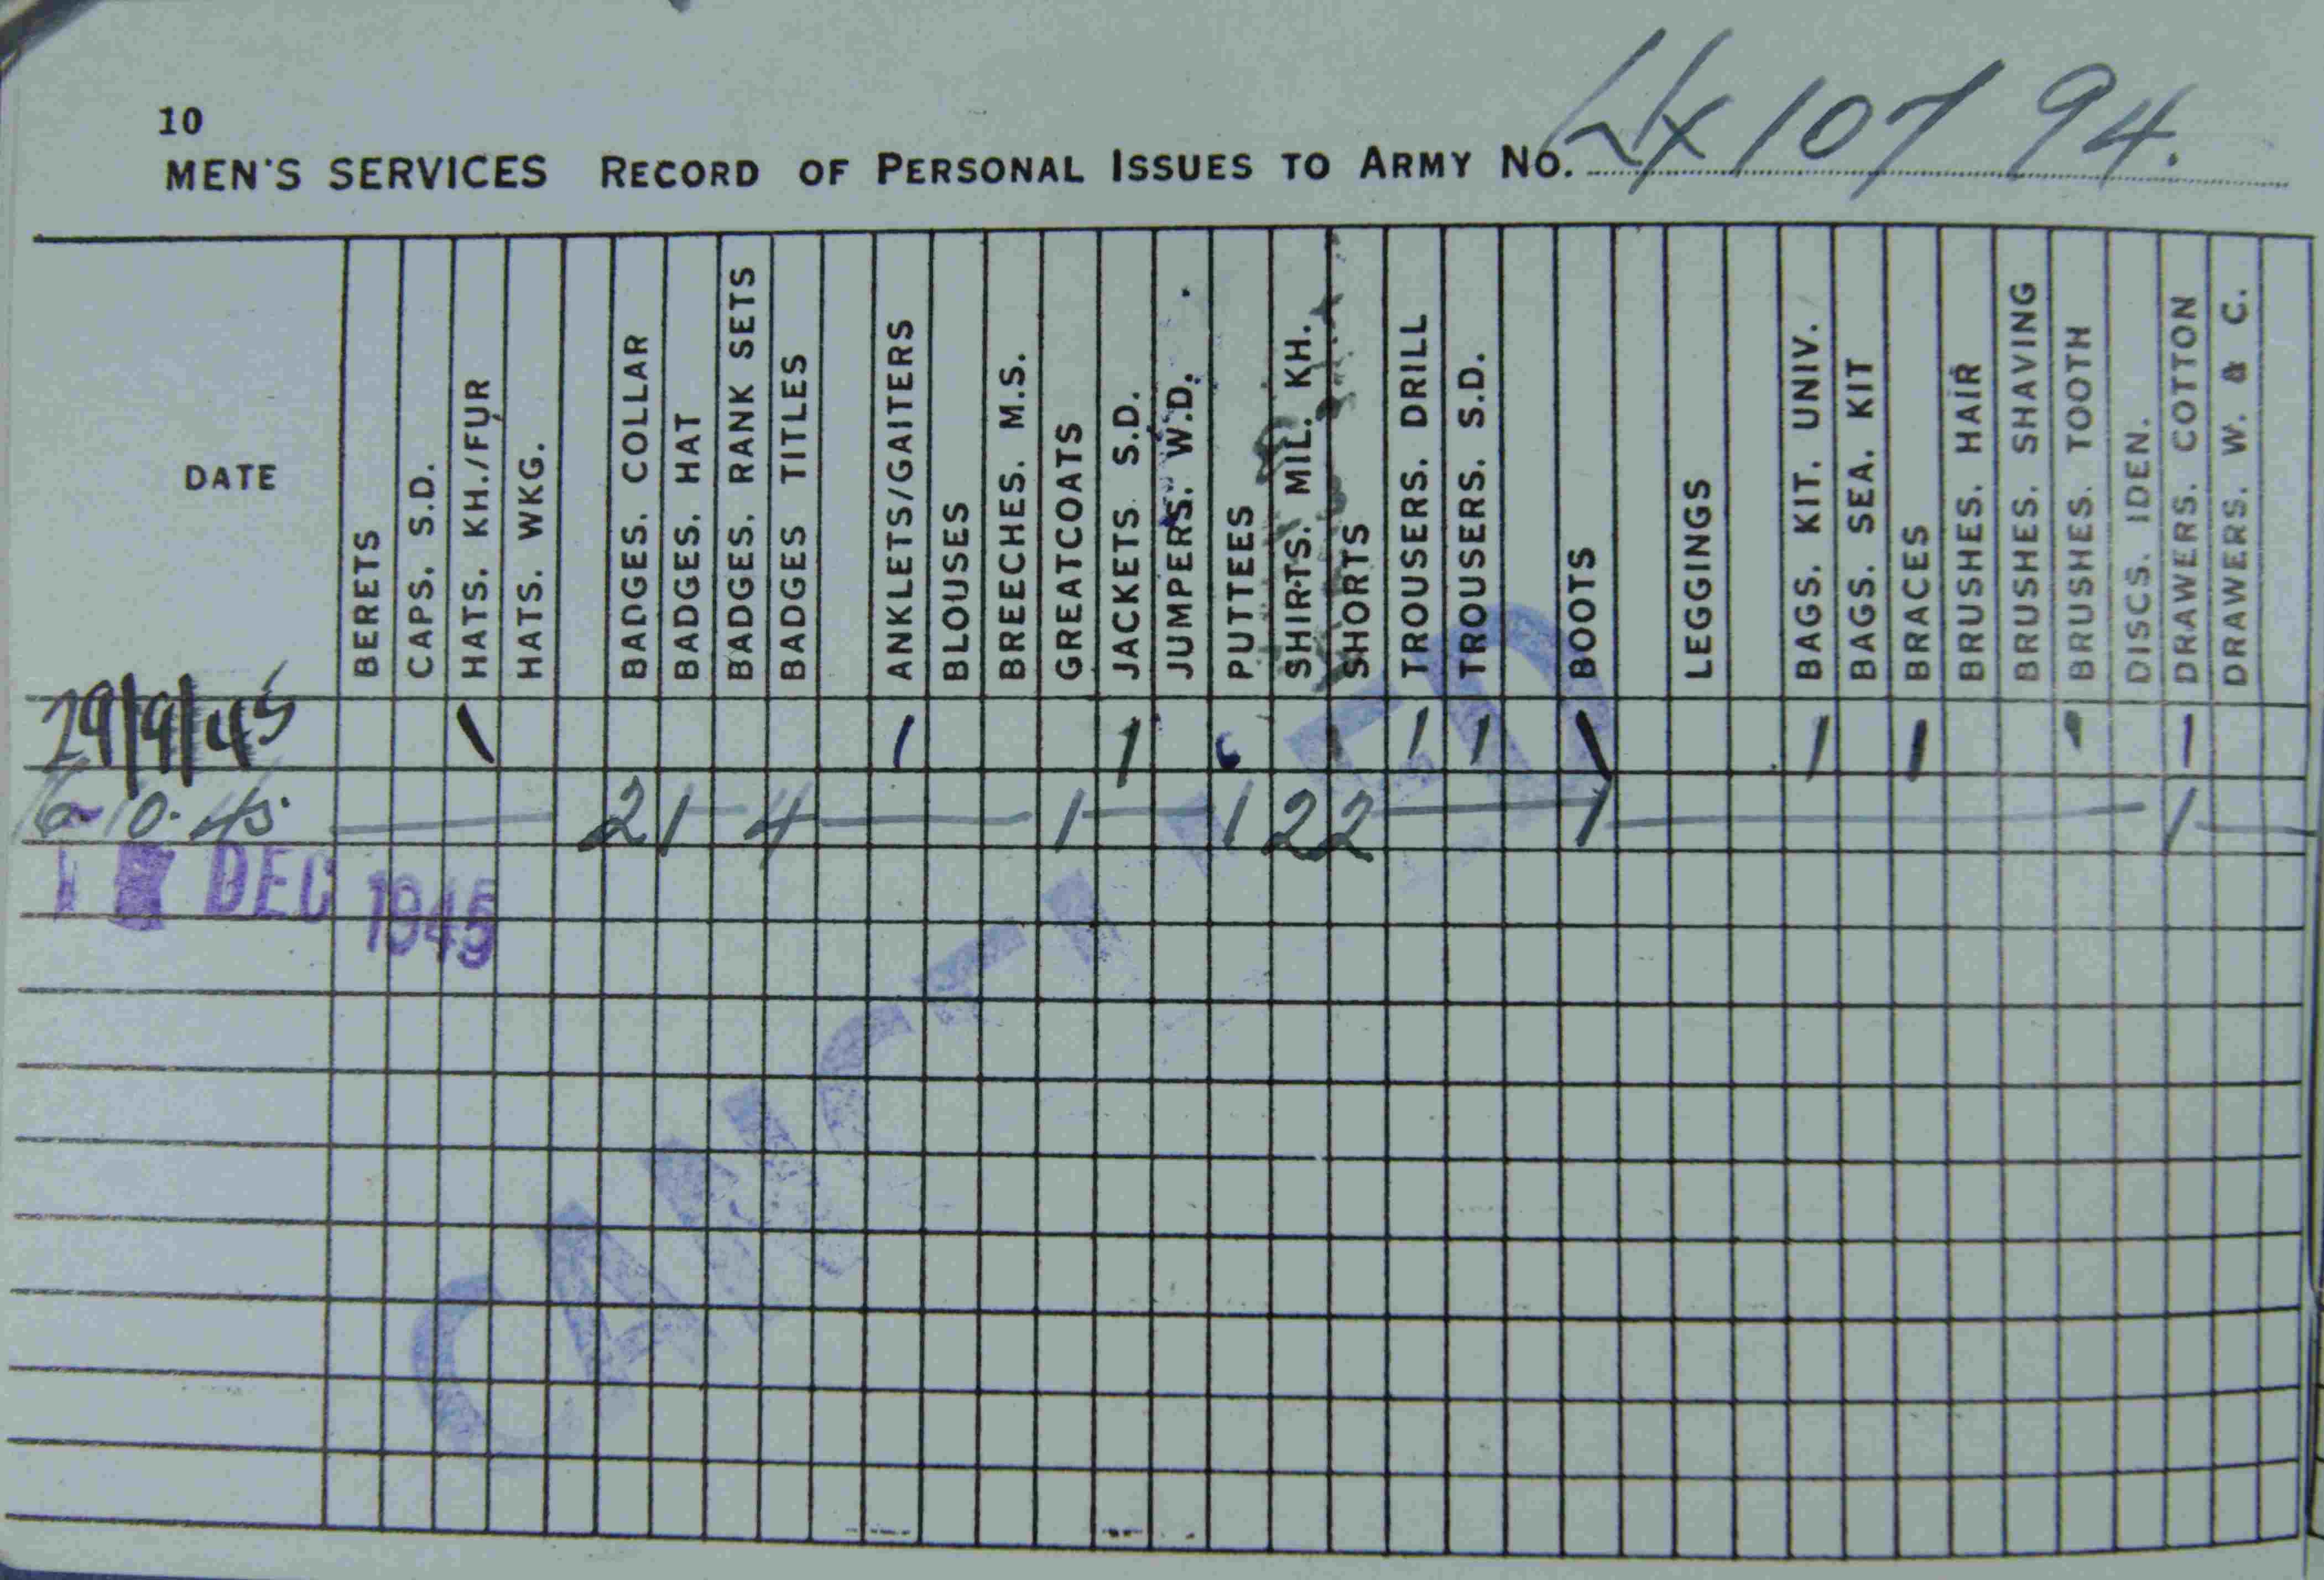 10
MEN'S SERVICES RECORD OF PERSONAL ISSUES TO ARMY NO. 107 94.
DATE
BERETS
CAPS. S.D.
HATS. KH./FUR
HATS. WKG.
BADGES. COLLAR
BADGES. HAT
BADGES. RANK SETS
BADGES TITLES
ANKLETS/GAITERS
BLOUSES
BREECHES. M.S.
GREATCOATS
JACKETS. S.D.
JUMPERS. W.D.
PUTTEES
SHIRTS. MIL. KH.
SHORTS
TROUSERS. DRILL
TROUSERS. S.D.
BOOTS
LEGGINGS
BAGS. KIT. UNIV.
BAGS. SEA. KIT
BRACES
BRUSHES. HAIR
BRUSHES. SHAVING
BRUSHES. TOOTH
DISCS. IDEN.
DRAWERS. COTTON
DRAWERS. W. & C.
29/9/45 1 1 1 1 1 1 1 1 1
10.45. 2 1 4 1 1 2 2 1 1
DEC 1945